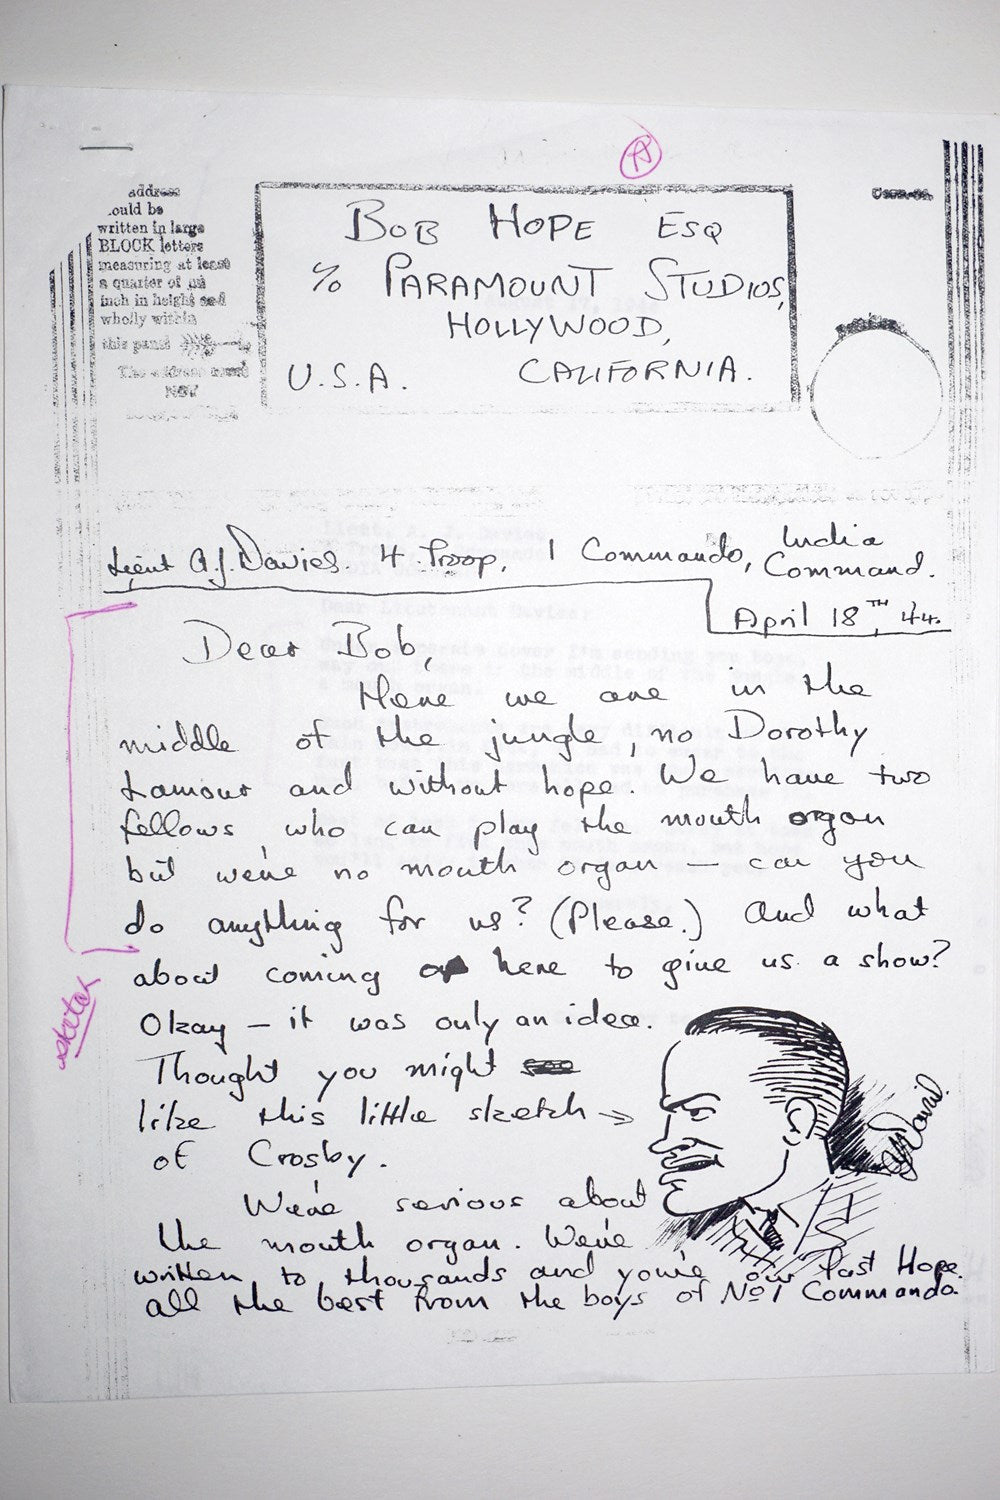 A
address
ould be
written in large
BLOCK letters
measuring at least
a quarter of an
inch in height and
wholly within
this panel
The address must
NOT
BOB HOPE ESQ
c/o PARAMOUNT STUDIOS,
HOLLYWOOD,
U.S.A. CALIFORNIA.
Lieut A.J. Davies. 4 Troop, 1 Commando, India
Command.
April 18TH, 44.
Dear Bob,
Here we are in the
middle of the jungle, no Dorothy
Lamour and without hope. We have two
fellows who can play the mouth organ
but we've no mouth organ — can you
do anything for us? (Please.) And what
about coming here to give us a show?
Okay — it was only an idea.
Thought you might
like this little sketch →
of Crosby.
We're serious about
the mouth organ. We've
written to thousands and you're our last Hope.
all the best from the boys of No 1 Commando.